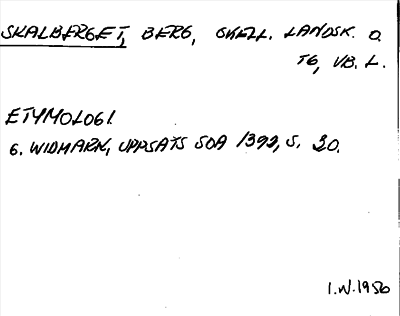 SKALBERGET, BERG, SKELL. LANDSK. O.
TG, VB. L.
ETYMOLOGI.
G. WIDMARK, UPPSATS SOA 1392, S. 30.
I.W. 1956